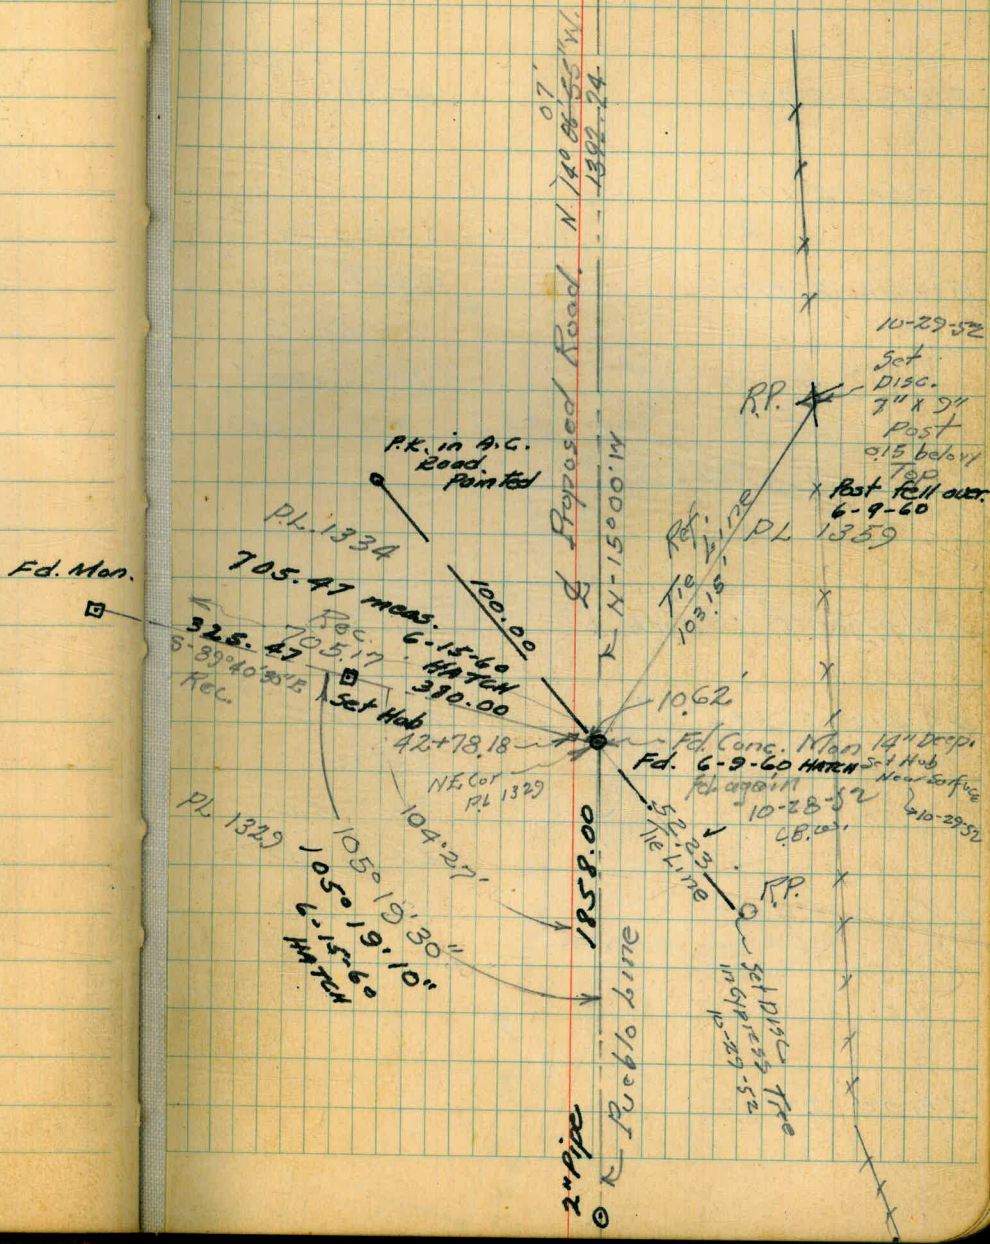 07'
N 14° 06' 55" W.
1392.24
℄ Proposed Road.
N-15°00'W
10-29-52
Set
Disc.
7" X 9"
Post
0.15 below
Top
R.P.
Post fell over.
6-9-60
PL 1359
P.K. in A.C.
Road.
Painted
P.L. 1334
100.00
Ref.
Tie Line
103.15'
Fd. Mon.
705.47 meas.
6-15-60
HATCH
380.00
Rec.
705.17
325.47
S-89°40'30"E
Rec.
Set Hub
10.62'
42+78.18
Fd. Conc. Mon 14" Deep.
Fd. 6-9-60 HATCH
Set Hub
Near Surface
10-29-52
Fd. again
10-28-52
NE Cor
PL 1329
PL 1329
104°27'
105°19'30"
105°19'10"
6-15-60
HATCH
1858.00
52.23
Tie Line
R.P.
Set Disc
in Cypress Tree
10-29-52
Pueblo Line
2" Pipe